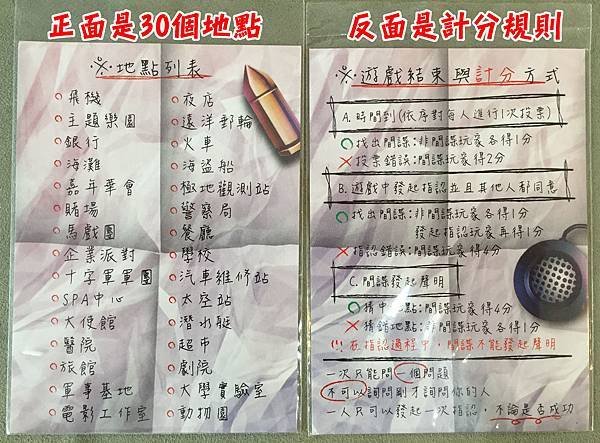 正面是30個地點
※地點列表
飛機
主題樂園
銀行
海灘
嘉年華會
賭場
馬戲團
企業派對
十字軍軍團
SPA中心
大使館
醫院
旅館
軍事基地
電影工作室
夜店
遠洋郵輪
火車
海盜船
極地觀測站
警察局
餐廳
學校
汽車維修站
太空站
潛水艇
超市
劇院
大學實驗室
動物園
反面是計分規則
※遊戲結束與計分方式
A.時間到(依序對每人進行1次投票)
找出間諜:非間諜玩家各得1分
投票錯誤:間諜玩家得2分
B.遊戲中發起指認並且其他人都同意
找出間諜:非間諜玩家各得1分
發起指認玩家再得1分
指認錯誤:間諜玩家得4分
C.間諜發起聲明
猜中地點:間諜玩家得4分
猜錯地點:非間諜玩家得1分
(!!)在指認過程中,間諜不能發起聲明
一次只能問一個問題
不可以詢問剛才詢問你的人
一人只可以發起一次指認,不論是否成功